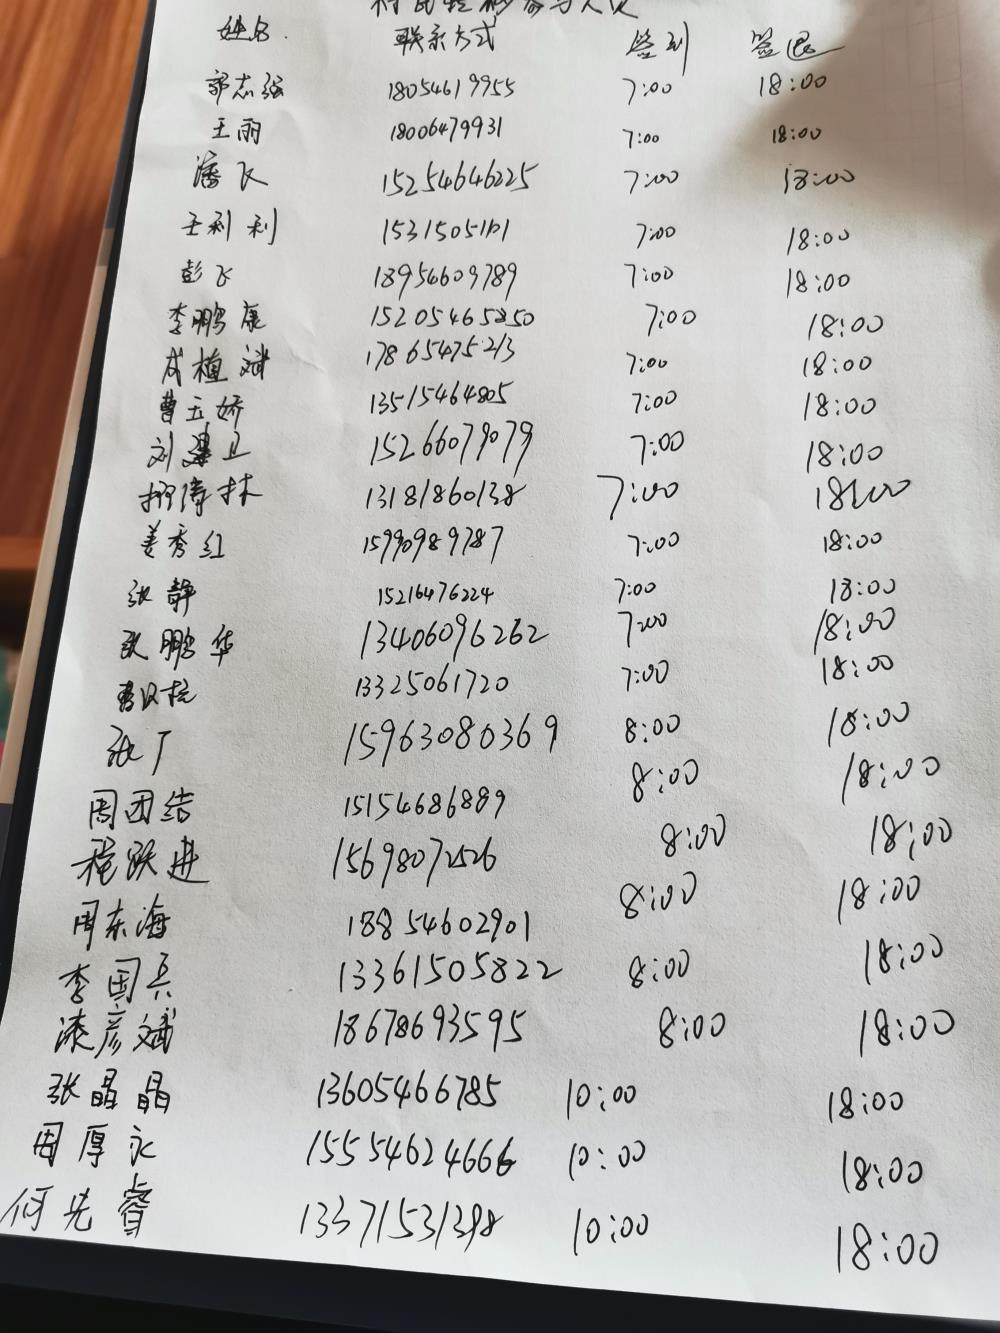 姓名. 联系方式 签到 签退
郭志强 18054619955 7:00 18:00
王丽 18006479931 7:00 18:00
潘飞 15254646225 7:00 18:00
王利利 7:00 18:00
彭飞 18954609789 7:00 18:00
李鹏康 15205465250 7:00 18:00
植斌 17865475213 7:00 18:00
曹玉娇 13515464805 7:00 18:00
刘建卫 15266079079 7:00 18:00
13181860138 7:00 18:00
姜秀红 15990989787 7:00 18:00
张静 15216476224 7:00 18:00
张鹏华 13406096262 7:00 18:00
13325061720 7:00 18:00
张广 15963080369 8:00 18:00
周团结 15154686889 8:00 18:00
程跃进 15698072526 8:00 18:00
周东海 18854602901 8:00 18:00
李国兵 13361505822 8:00 18:00
漆彦斌 18678693595 8:00 18:00
张晶晶 13605466785 10:00 18:00
周厚永 15554624666 10:00 18:00
何先睿 13371531398 10:00 18:00